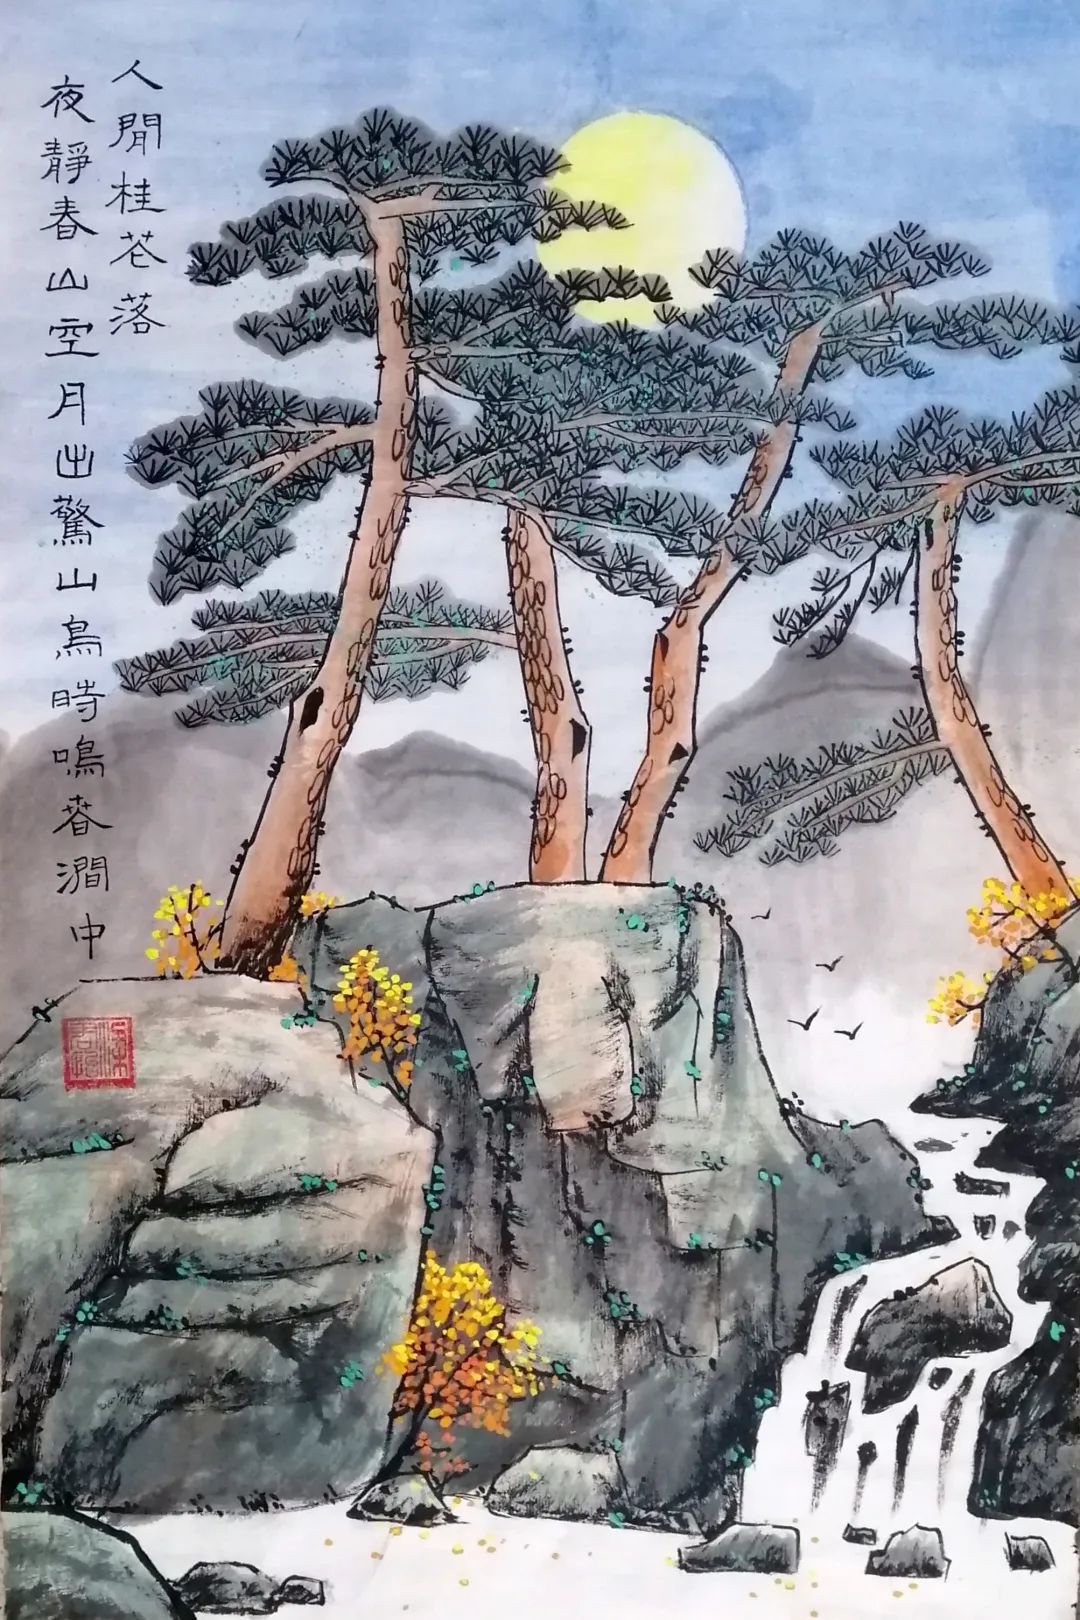 人閒桂花落
夜靜春山空月出驚山鳥時鳴春澗中